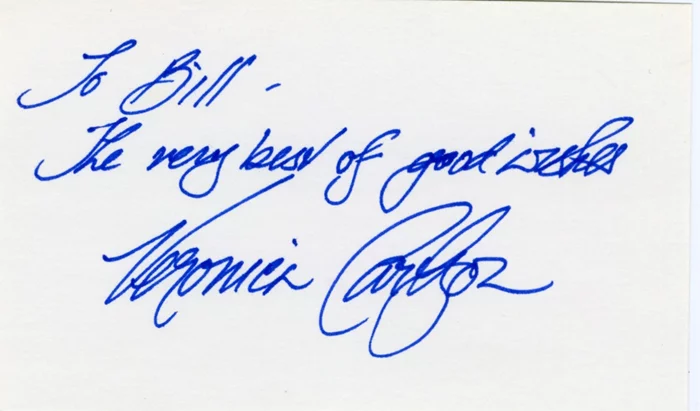 To Bill -
The very best of good wishes
Veronica Carlson